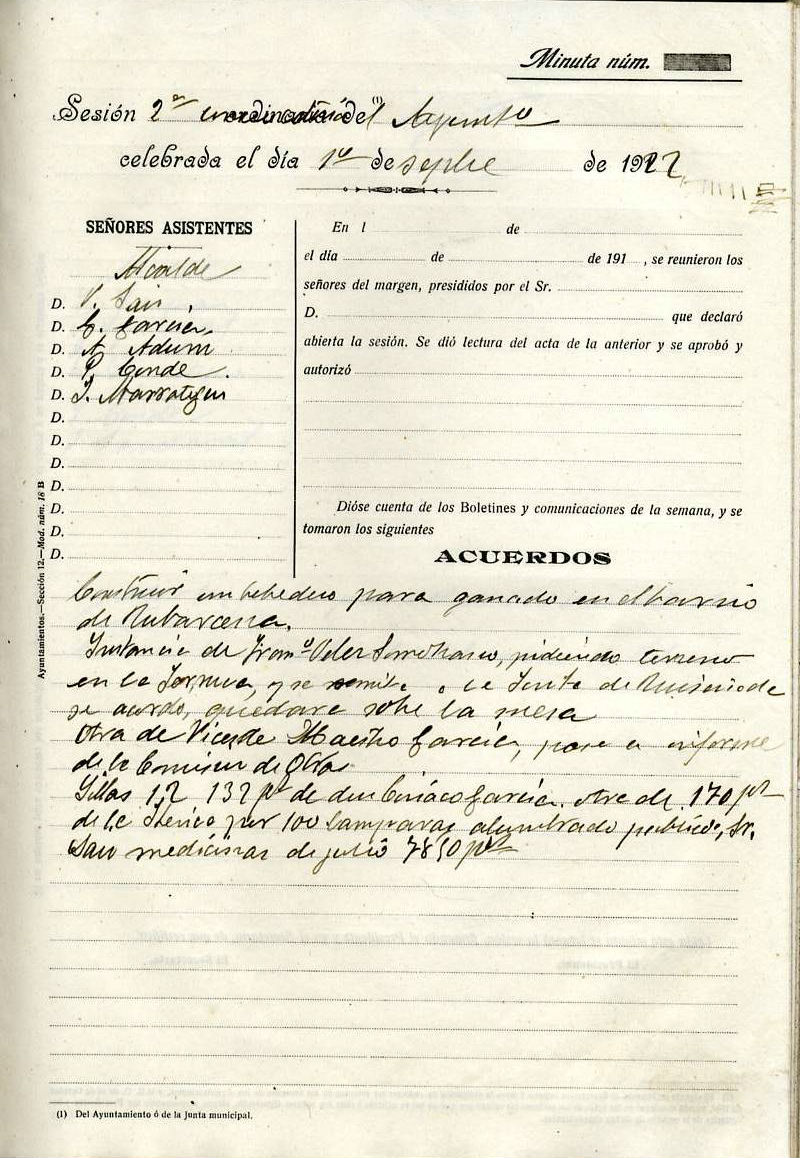 Minuta núm.
Sesión 2ª del (1) Ayumtº
celebrada el día 1º de sepbre de 1922
SEÑORES ASISTENTES
Alcalde
D. V. Sain
D. C. García
D. A. Adum
D. P. Conde
D. J.
D.
D.
D.
D.
D.
D.
D.
En l de
el día de de 191 , se reunieron los
señores del margen, presididos por el Sr.
D. que declaró
abierta la sesión. Se dió lectura del acta de la anterior y se aprobó y
autorizó
Dióse cuenta de los Boletines y comunicaciones de la semana, y se
tomaron los siguientes
ACUERDOS
Construir un bebedero para ganado en el barrio
de
Instancia de Franº pidiendo terreno
en la y se remite a la Junta de
se acordo, quedare sobe la mesa
Otra de Vicente Maestro García, pase a informe
de la Comision de Obras
Sillas 12 132 pts de don Ciriáco García. otra de 170 pts
de la por 100 lamparas alumbrado publico, Sr.
Sain medicinas de julio 7850 pts
Ayuntamientos.—Sección 12.—Mod. núm. 16 B
(1) Del Ayuntamiento ó de la Junta municipal.